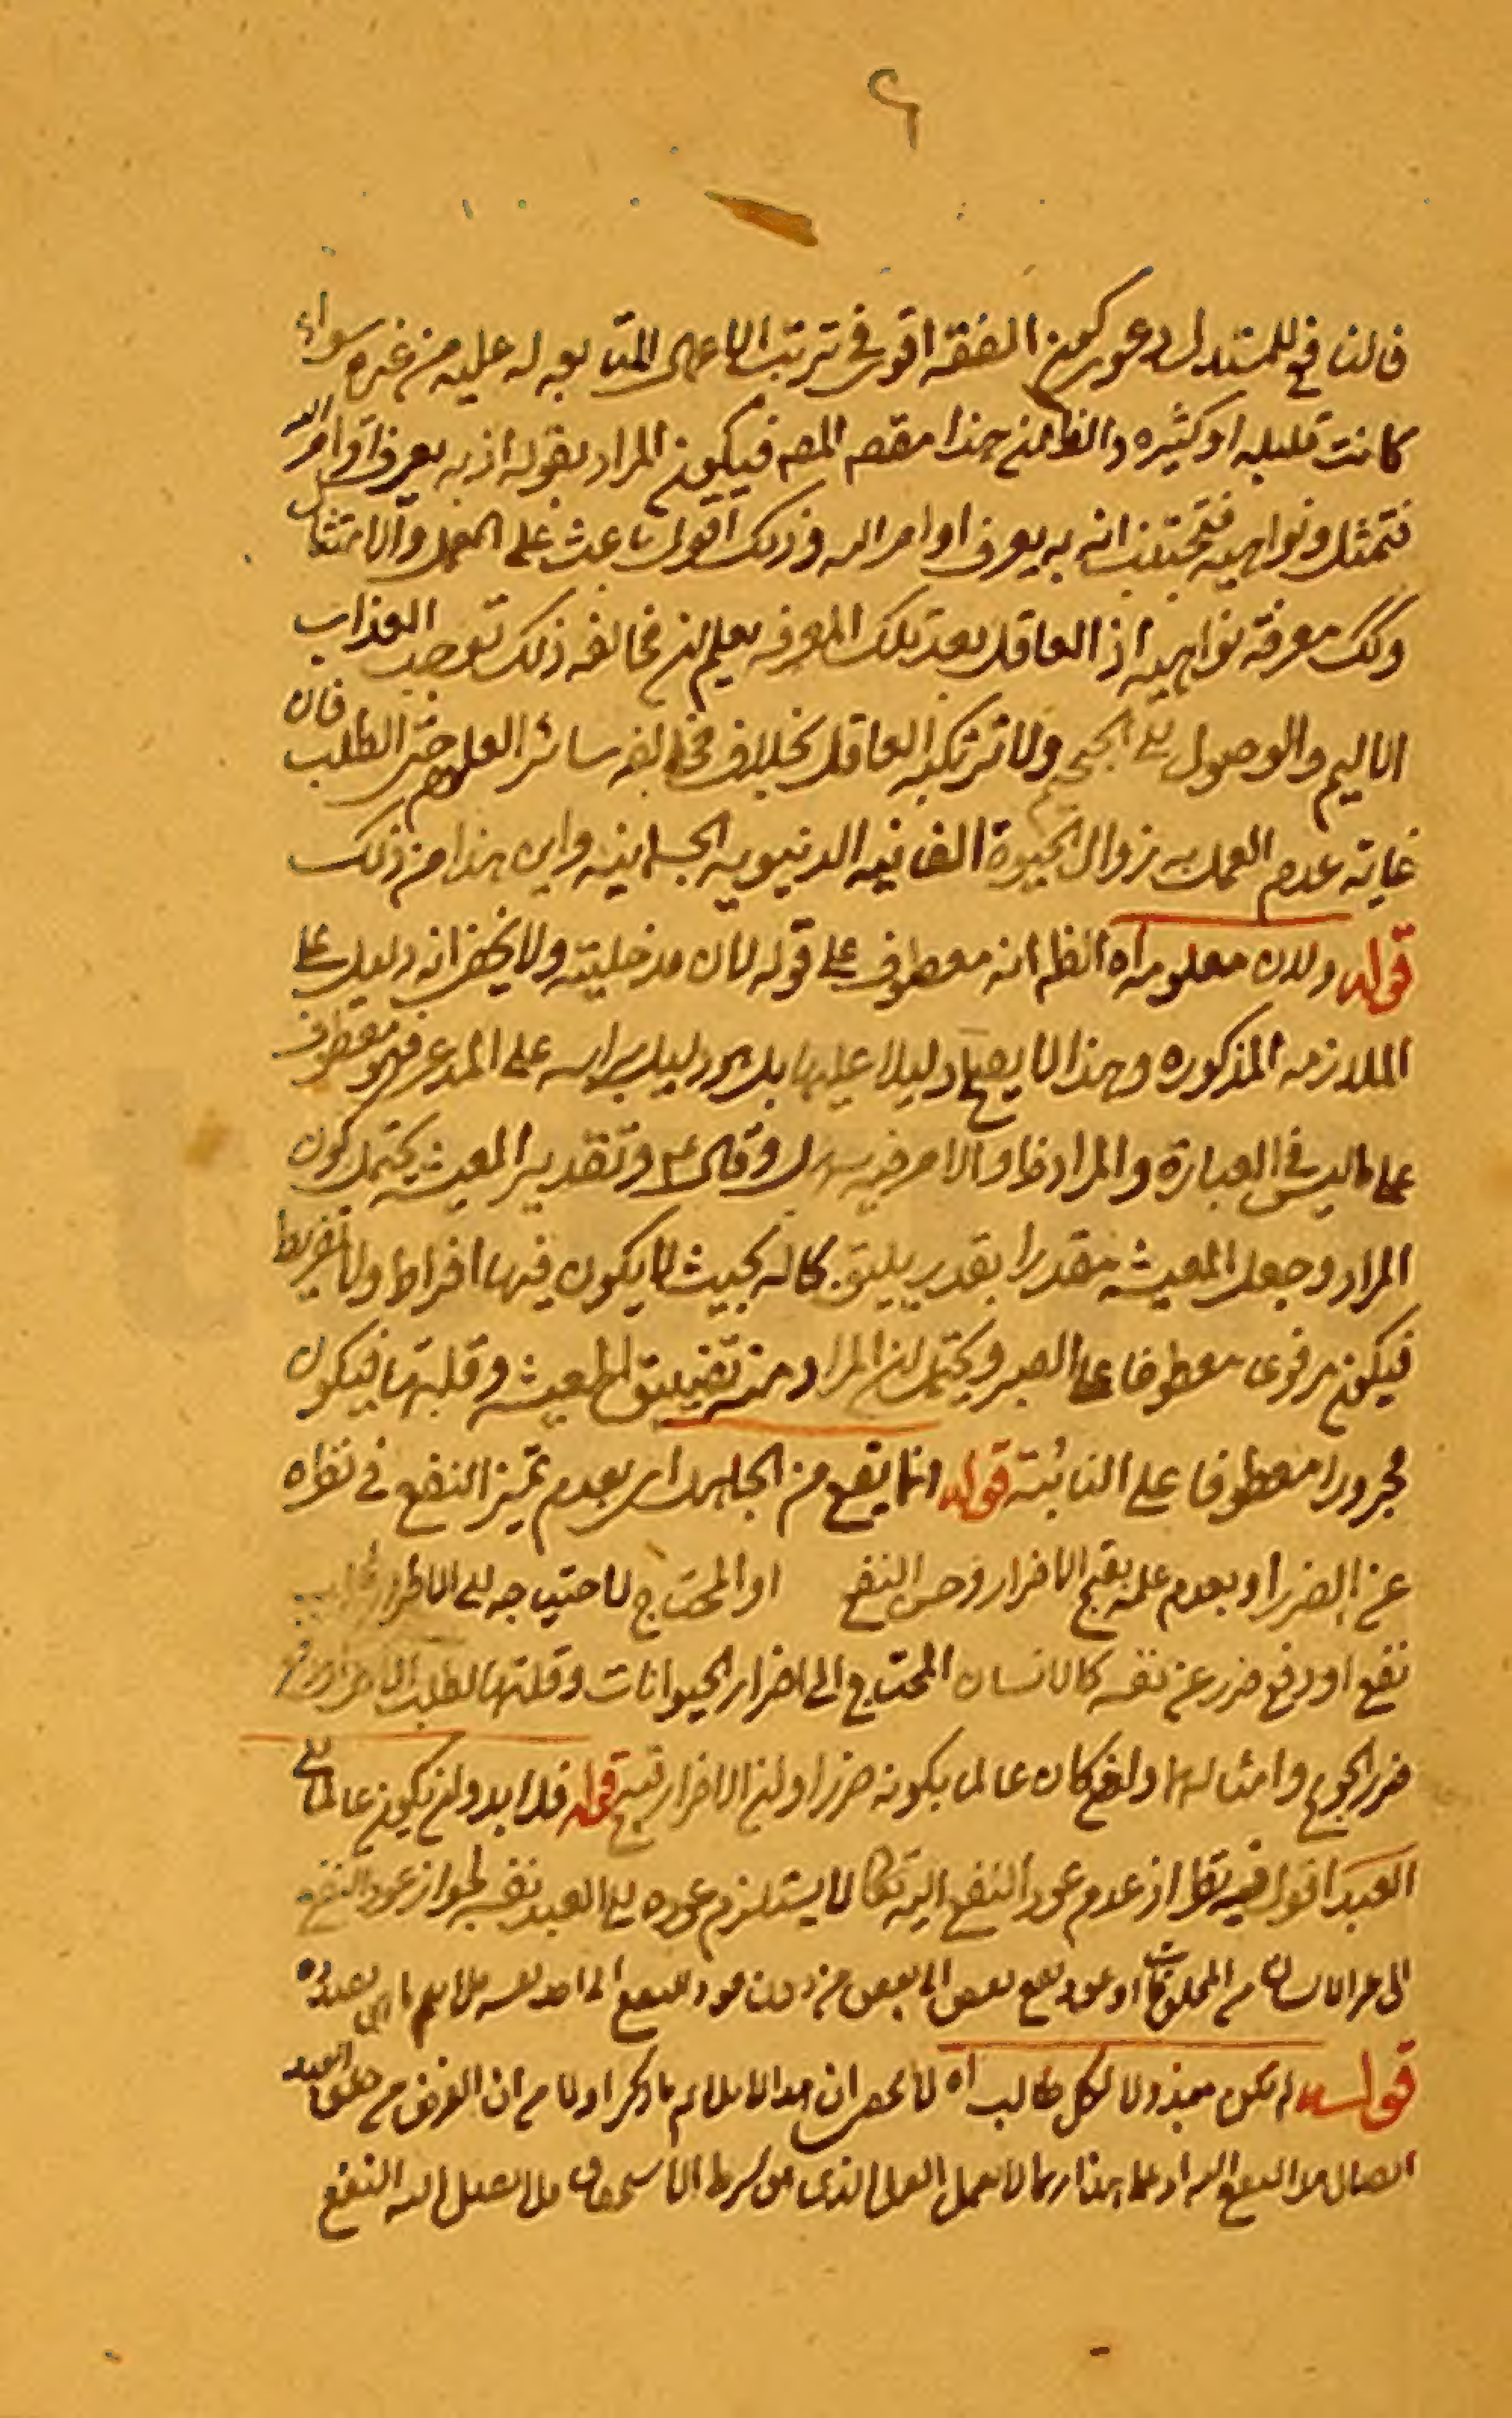 ٦
فالنافع للمستدل دعوى كون الفقه اقوى في ترتب الاعمال المتابعه له عليه من غيره سواء
كانت قليله او كثيره والظاهر هذا مقصد المصه فيكون المراد بقوله اذ به يعرف اوامر الله
فتمتثل ونواهيه فتجتنب انه به يعرف اوامر الله وذلك اقوى باعث على العمل والامتثال
وكك معرفة نواهيه اذ العاقل بعد تلك المعرفه يعلم ان مخالفه ذلك توجب العذاب
الاليم والوصول الى الجحيم ولا ترتكبه العاقل بخلاف مخالفه سائر العلوم حتى الطب فان
غاية عدم العمل به زوال الحيوة الفانيه الدنيويه الجسمانيه واين هذا من ذلك
قوله ولان معلومه اه الظه انه معطوف على قوله لان مدخليته ولا يخفى انه دليل على
الملازمه المذكوره وهذا لا يصلح دليلا عليها بل هو دليل براسه على المدعى فهو معطوف
على ما ليس في العبارة والمراد والامر فيه سهل وقال وتقدير المعيشه يحتمل كون
المراد وجعل المعيشه مقدرا بقدر يليق بحاله بحيث لا يكون فيها افراط ولا تفريط
فيكون مرفوعا معطوفا على الصبر ويحتمل ان المراد منه تضييق المعيشه وقلتها فيكون
مجرورا معطوفا على النائبة قوله انما يقع من الجاهل اى بعدم تميز النفع في نظره
عن الضرر او بعدم علمه بقبح الاضرار وحسن النفع او المحتاج لاحتياجه الى الاضرار
نفع او دفع ضرر عن نفسه كالانسان المحتاج الى اضرار الحيوانات وقتلها لطلب
ضرر الجوع وامثالها وان كان عالما بكونه ضررا وان الاضرار قبيح قوله فلا بد وان يكون عائدا الى
العبد اقول فيه نظر اذ عدم عود النفع اليه تعالى لا يستلزم عوده الى العبد نفسه لجواز عود النفع
الى غير الانسان من المخلوقات او عود نفع بعض الى بعض من دون عود النفع الى احد نفسه فلا يتم ما بعده
قوله لم يكن مبذولا لكل طالب اه لا يخفى ان هذا لا يلائم ما ذكر اولا من ان الغرض من خلق العبد
ايصال النفع اليه هذا ربما لا يعمل العمل الذى هو شرط الاستحقاق فلا يصل اليه النفع